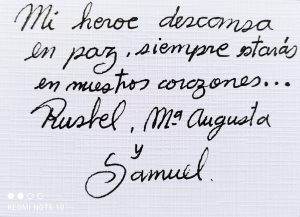 Mi heroe descansa
en paz, siempre estarás
en nuestros corazones...
Rustel, Mª Augusta
y
Samuel.
REDMI NOTE 10